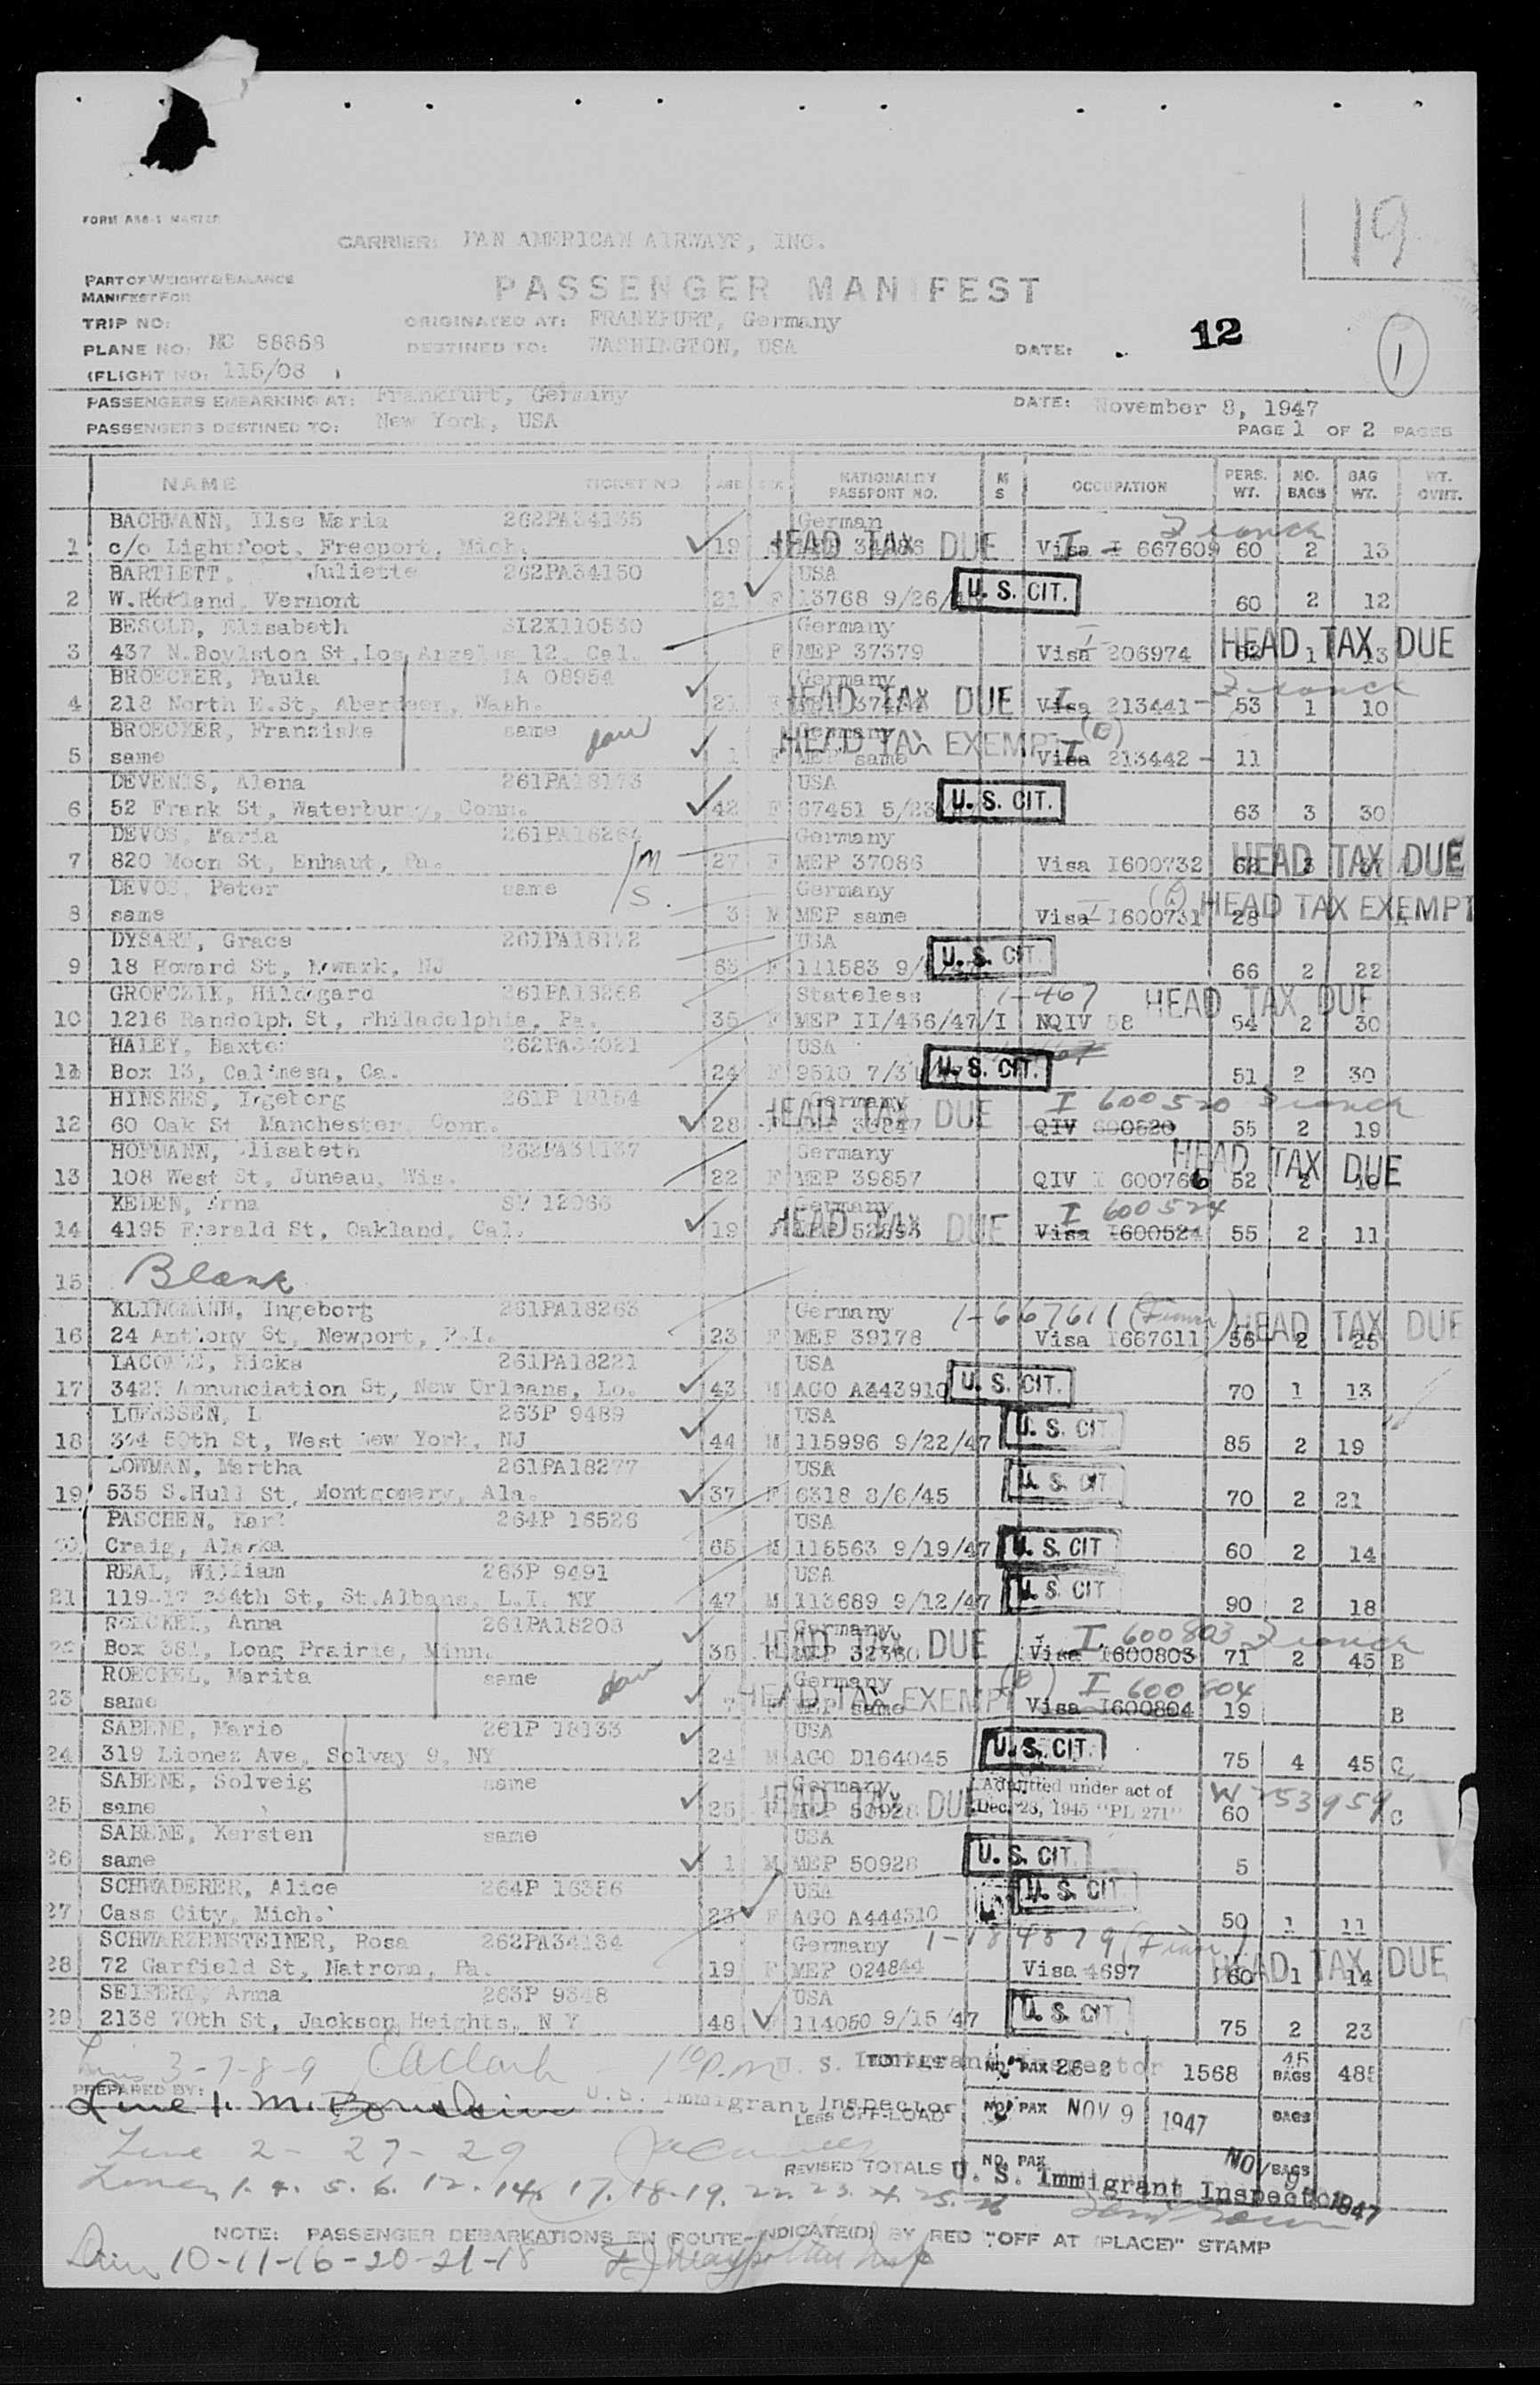 19
FORM
MASTER
CARRIER: PAN AMERICAN AIRWAYS, INC.
PART OF WEIGHT & BALANCE
MANIFEST FOR
PASSENGER MANIFEST
TRIP NO:
ORIGINATED AT: FRANKFURT, Germany
12
PLANE NO: NC 88868
DESTINED TO: WASHINGTON, USA
DATE:
1
(FLIGHT NO: 115/08 )
PASSENGERS EMBARKING AT: Frankfurt, Germany
DATE: November 8, 1947
PASSENGERS DESTINED TO: New York, USA
PAGE 1 OF 2 PAGES
NAME TICKET NO. AGE SEX NATIONALITY PASSPORT NO. M S OCCUPATION PERS. WT. NO. BAGS BAG WT. WT. OVHT.
BACHMANN, Ilse Maria 262PA34135 German
1 c/o Lightfoot, Freeport, Mich. 19 HEAD TAX DUE Visa I 667609 60 2 13
BARTLETT, Juliette 262PA34150 USA
2 W.Rutland, Vermont 21 F 13768 9/26/ U. S. CIT. 60 2 12
BESOLD, Elisabeth SI2X110530 Germany
3 437 N.Boylston St,Los Angeles 12, Cal. F MEP 37379 Visa 206974 HEAD TAX DUE 1 13
BROECKER, Paula LA 08954 Germany
4 218 North H.St, Aberdeen, Wash. 21 HEAD TAX DUE Visa 213441 53 1 10
BROECKER, Franziska same Germany
5 same 1 F MEP same HEAD TAX EXEMPT Visa 213442 11
DEVENIS, Alena 261PA18173 USA
6 52 Frank St, Waterbury, Conn. 42 F 67451 5/23 U. S. CIT. 63 3 30
DEVOS, Maria 261PA18264 Germany
7 820 Moon St, Enhaut, Pa. M 27 F MEP 37086 Visa I600732 68 3 HEAD TAX DUE
DEVOS, Peter same Germany
8 same S. 3 M MEP same Visa I600731 28 HEAD TAX EXEMPT
DYSART, Grace 261PA18172 USA
9 18 Howard St, Newark, NJ 63 F 111583 9/ U. S. CIT. 66 2 22
GROFCZIK, Hildegard 261PA18268 Stateless HEAD TAX DUE
10 1216 Randolph St, Philadelphia, Pa. 35 F MEP II/436/47/I NQIV 58 54 2 30
HALEY, Baxter 262PA34021 USA
11 Box 13, Calimesa, Ca. 24 F 9510 7/31/ U. S. CIT. 51 2 30
HINSKES, Ingeborg 261P 18154 Germany I 600520
12 60 Oak St Manchester, Conn. 28 HEAD TAX DUE QIV 600520 55 2 19
HOFMANN, Elisabeth 262PA34137 Germany HEAD TAX DUE
13 108 West St, Juneau, Wis. 22 F MEP 39857 QIV I 600766 52 2
KEDEN, Erna SF 12066 Germany I 600524
14 4195 Emerald St, Oakland, Cal. 19 HEAD TAX DUE Visa I600524 55 2 11
15 Blank
KLINGMANN, Ingeborg 261PA18263 Germany 1-667611
16 24 Anthony St, Newport, R.I. 23 F MEP 39178 Visa I667611 56 2 25 HEAD TAX DUE
LACOMBE, Hicks 261PA18221 USA
17 342 Annunciation St, New Orleans, Lo. 43 M AGO A343910 U. S. CIT. 70 1 13
LUERSSEN, L 263P 9489 USA
18 50th St, West New York, NJ 44 M 115996 9/22/47 U. S. CIT 85 2 19
LOWMAN, Martha 261PA18277 USA
19 535 S.Hull St, Montgomery, Ala. 37 F 6318 8/6/45 U. S. CIT 70 2 21
PASCHEN, Karl 264P 16526 USA
20 Craig, Alaska 65 M 115563 9/19/47 U. S. CIT 60 2 14
REAL, William 263P 9491 USA
21 119-17 234th St, St.Albans, L.I. NY 47 M 113689 9/12/47 U. S. CIT 90 2 18
ROECKEL, Anna 261PA18208 Germany I 600803
22 Box 381, Long Prairie, Minn. 38 MEP 32380 HEAD TAX DUE Visa I600803 71 2 45 B
ROECKEL, Marita same Germany I 600804
23 same 7 MEP same HEAD TAX EXEMPT Visa I600804 19 B
SABENE, Mario 261P 18133 USA
24 319 Lionez Ave, Solvay 9, NY 24 M AGO D164045 U. S. CIT. 75 4 45 C
SABENE, Solveig same Germany Admitted under act of
25 same 25 MEP 50928 HEAD TAX DUE Dec. 28, 1945 "PL 271" 60 C
SABENE, Karsten same USA
26 same 1 M MEP 50928 U. S. CIT. 5
SCHWADERER, Alice 264P 16356 USA
27 Cass City, Mich. 23 F AGO A444310 U. S. CIT. 50 1 11
SCHWARZENSTEINER, Rosa 262PA34134 Germany
28 72 Garfield St, Natrona, Pa. 19 F MEP 024844 Visa 4697 60 1 14 HEAD TAX DUE
SEIFERT, Anna 263P 9348 USA
29 2138 70th St, Jackson Heights, N Y 48 F 114050 9/15/47 U. S. CIT 75 2 23
3-7-8-9
TOTALS NO. PAX 26-2 1568 45 BAGS 485
U. S. Immigrant Inspector
PREPARED BY:
U. S. Immigrant Inspector
LESS OFF-LOAD NO. PAX NOV 9 1947 BAGS
Line 2 - 27 - 29
REVISED TOTALS NO. PAX BAGS
U. S. Immigrant Inspector NOV 9 1947
Lines 1. 4. 5. 6. 12. 14. 17. 18. 19. 22. 23. 24. 25. 26
NOTE: PASSENGER DEBARKATIONS EN ROUTE INDICATE(D) BY RED "OFF AT (PLACE)" STAMP
10-11-16-20-21-18